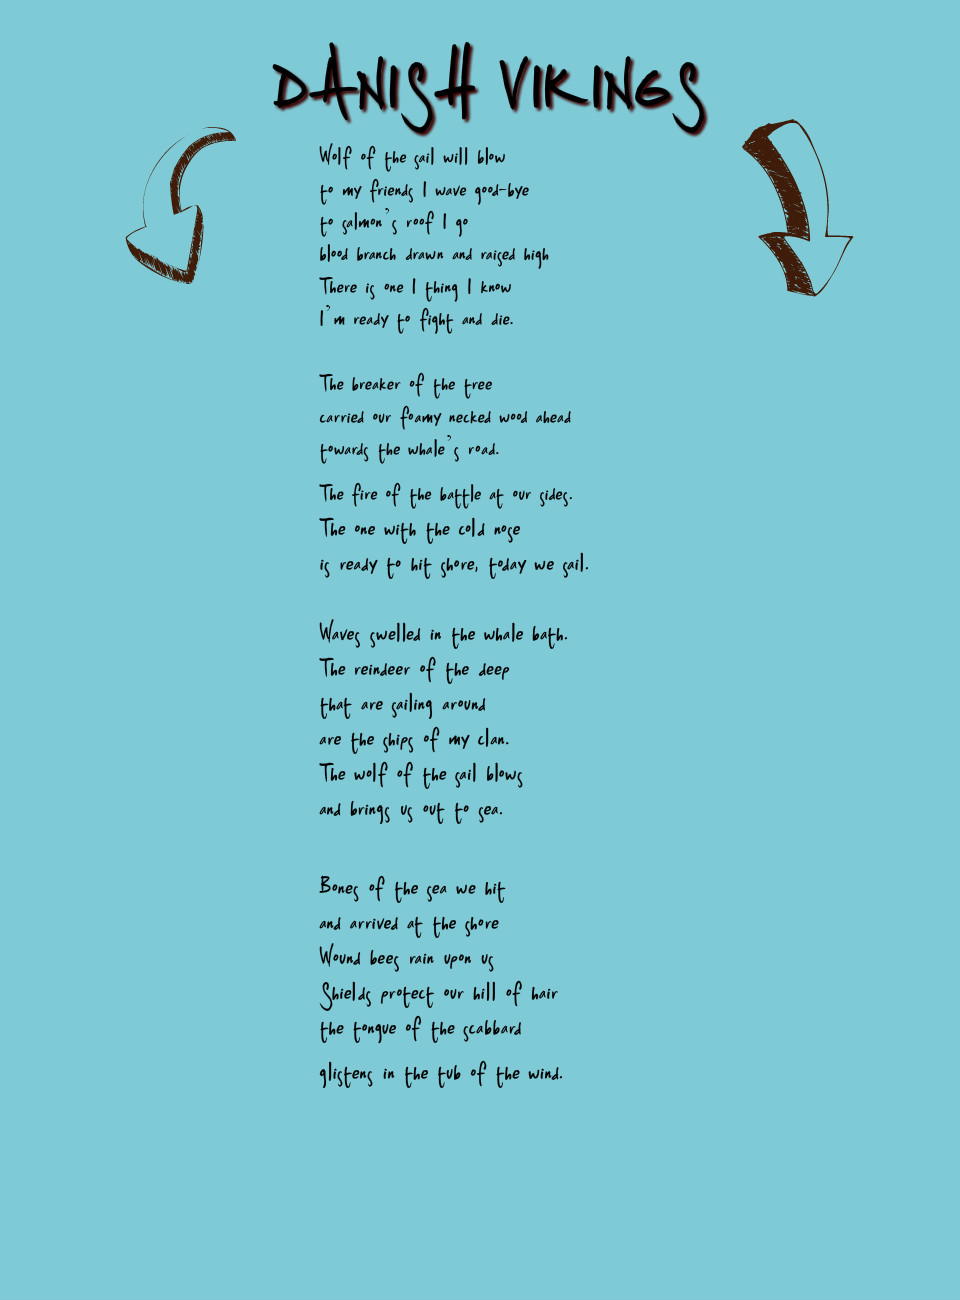 DANISH VIKINGS
Wolf of the sail will blow
to my friends I wave good-bye
to salmon's roof I go
blood branch drawn and raised high
There is one I thing I know
I'm ready to fight and die.
The breaker of the tree
carried our foamy necked wood ahead
towards the whale's road.
The fire of the battle at our sides.
The one with the cold nose
is ready to hit shore, today we sail.
Waves swelled in the whale bath.
The reindeer of the deep
that are sailing around
are the ships of my clan.
The wolf of the sail blows
and brings us out to sea.
Bones of the sea we hit
and arrived at the shore
Wound bees rain upon us
Shields protect our hill of hair
the tongue of the scabbard
glistens in the tub of the wind.